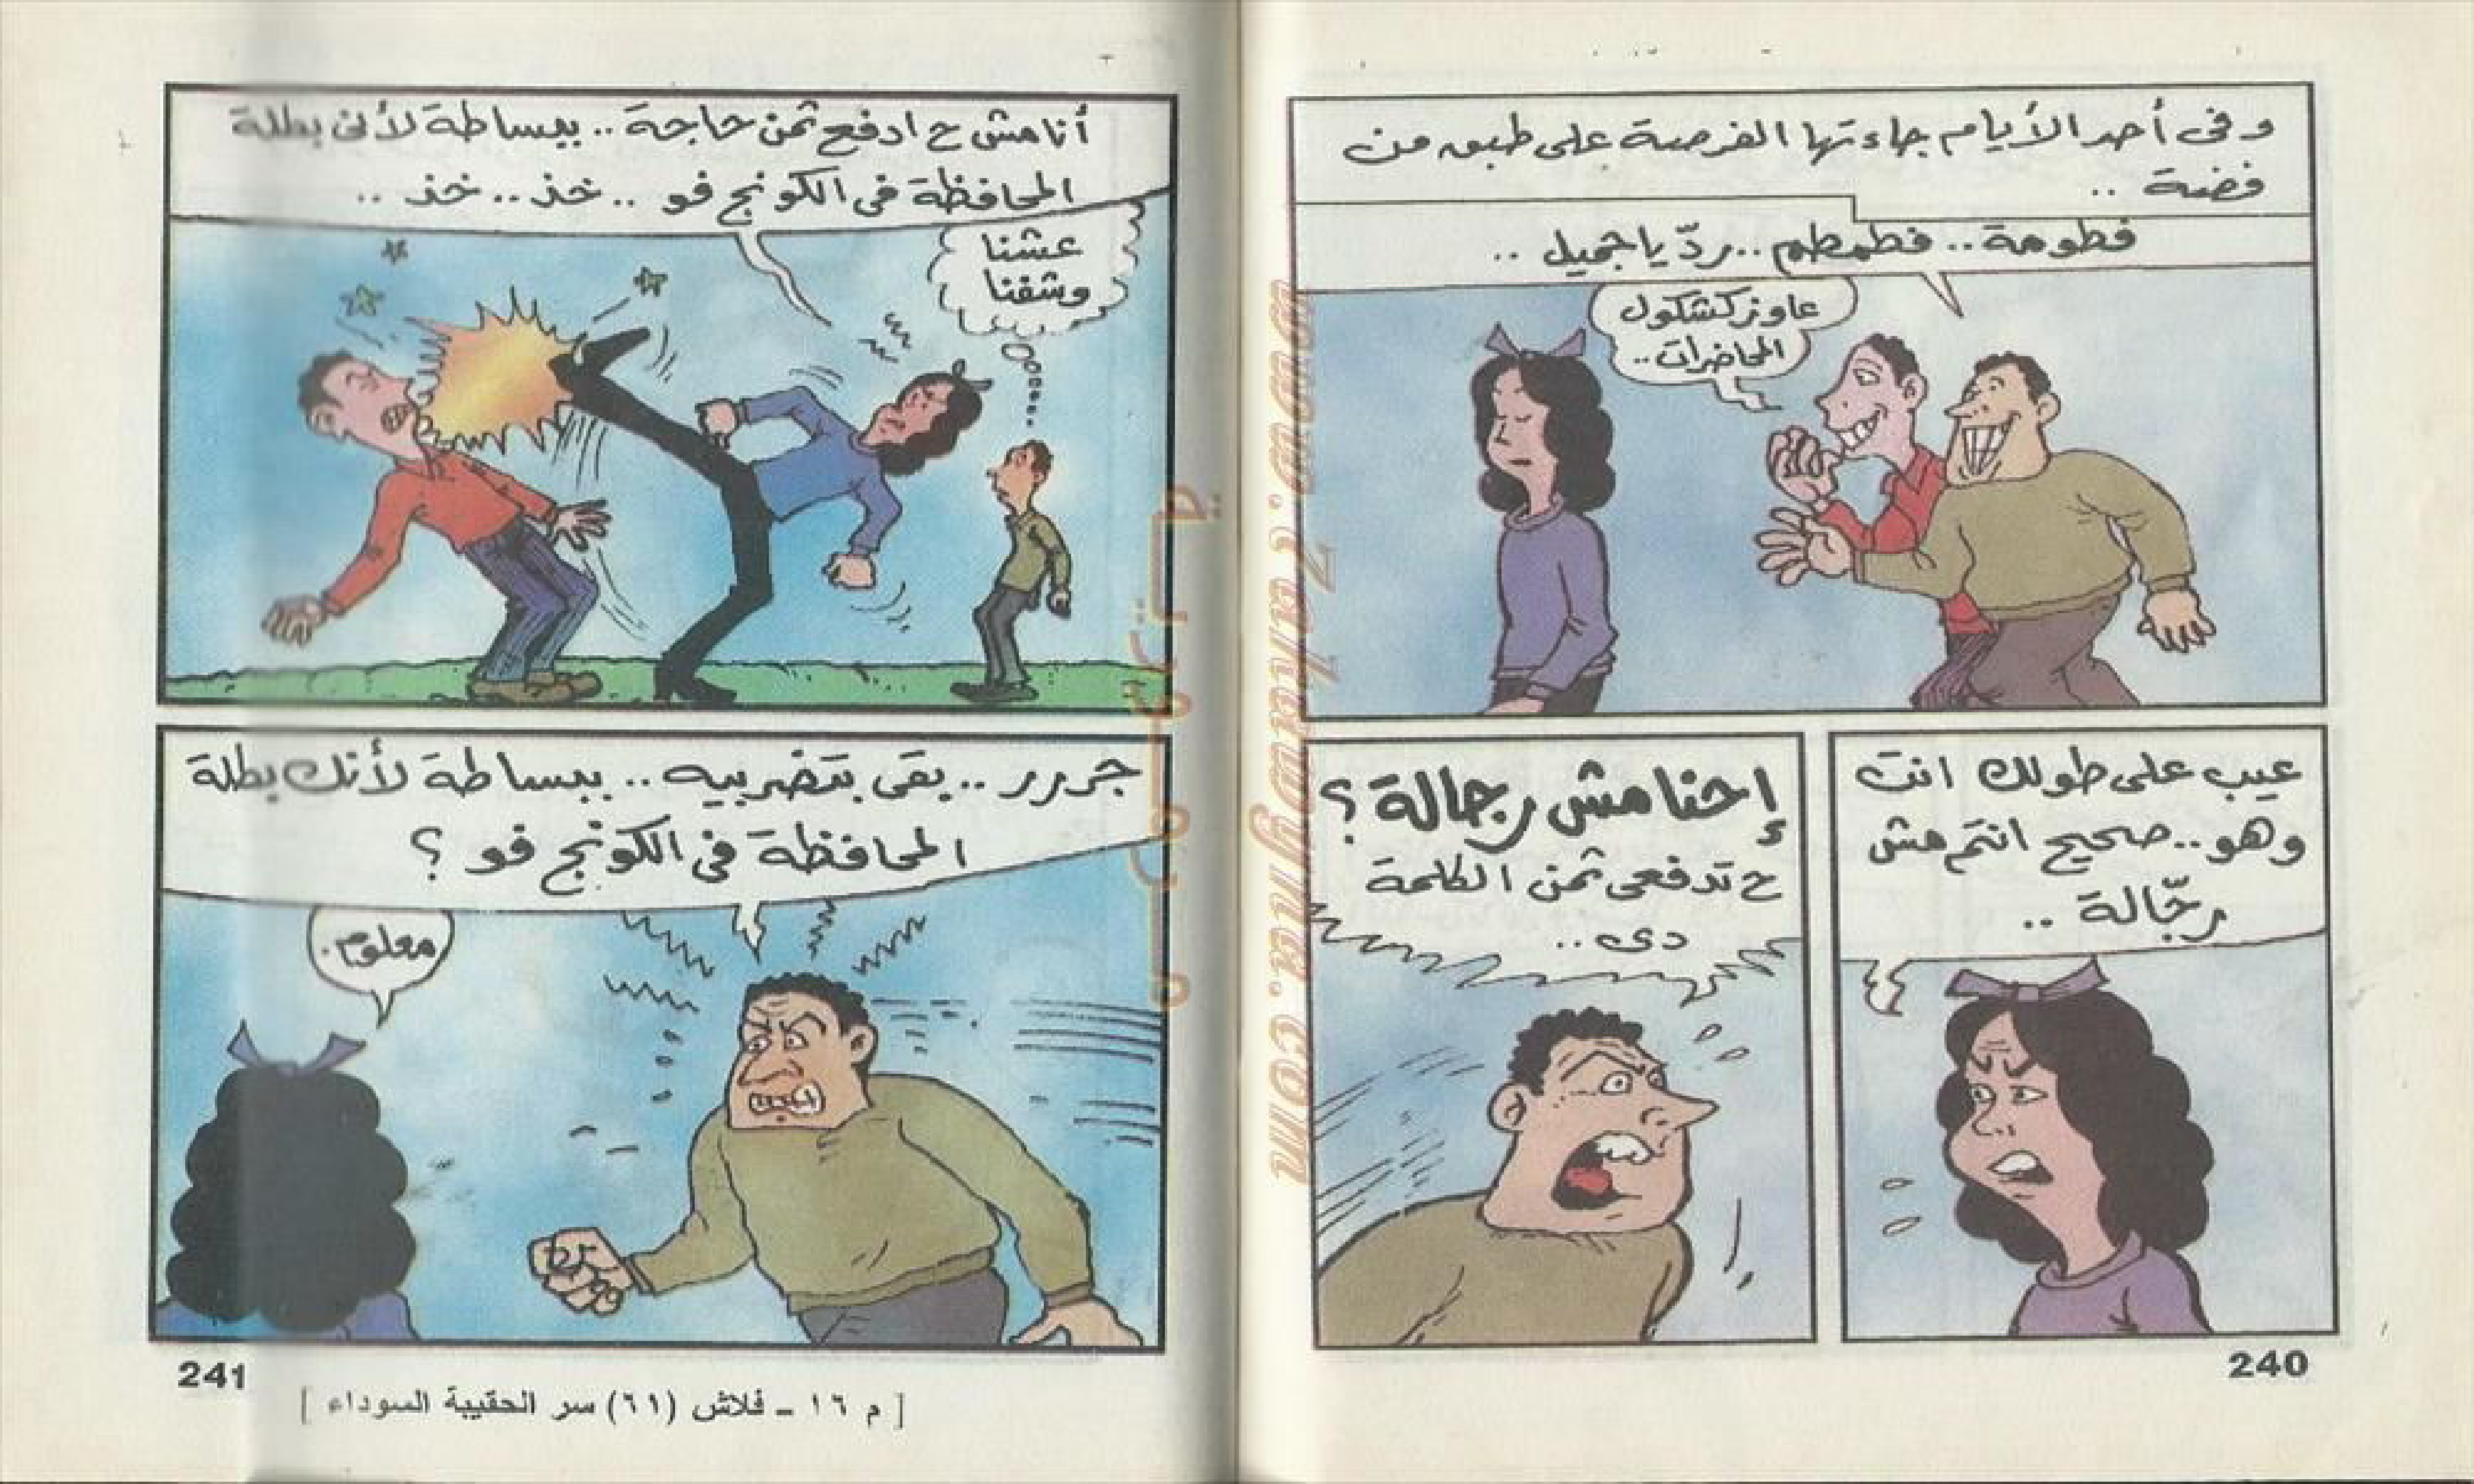 وفى أحد الأيام جاءتها الفرصة على طبق من
فضة ..
فطومة .. فطمطم .. ردّ يا جميل ..
عاوز كشكول
المحاضرات ..
عيب على طولك انت
وهو .. صحيح انتم مش
رجّالة ..
إحنا مش رجالة ؟
ح تدفعى ثمن الكلمة
دى ..
240
أنا مش ح ادفع ثمن حاجة .. ببساطة لأنى بطلة
المحافظة فى الكونج فو .. خذ .. خذ ..
عشنا
وشفنا
جررر .. بقى بتضربيه .. ببساطة لأنك بطلة
المحافظة فى الكونج فو ؟
معلوم .
241
[ م ١٦ - فلاش (٦١) سر الحقيبة السوداء ]